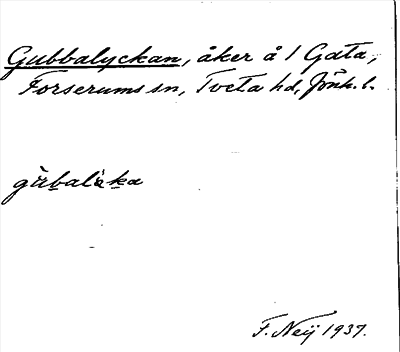 Gubbalyckan, åker å 1 Gata,
Forserums sn, Tveta hd, Jönk. l.
F. Neij 1937.